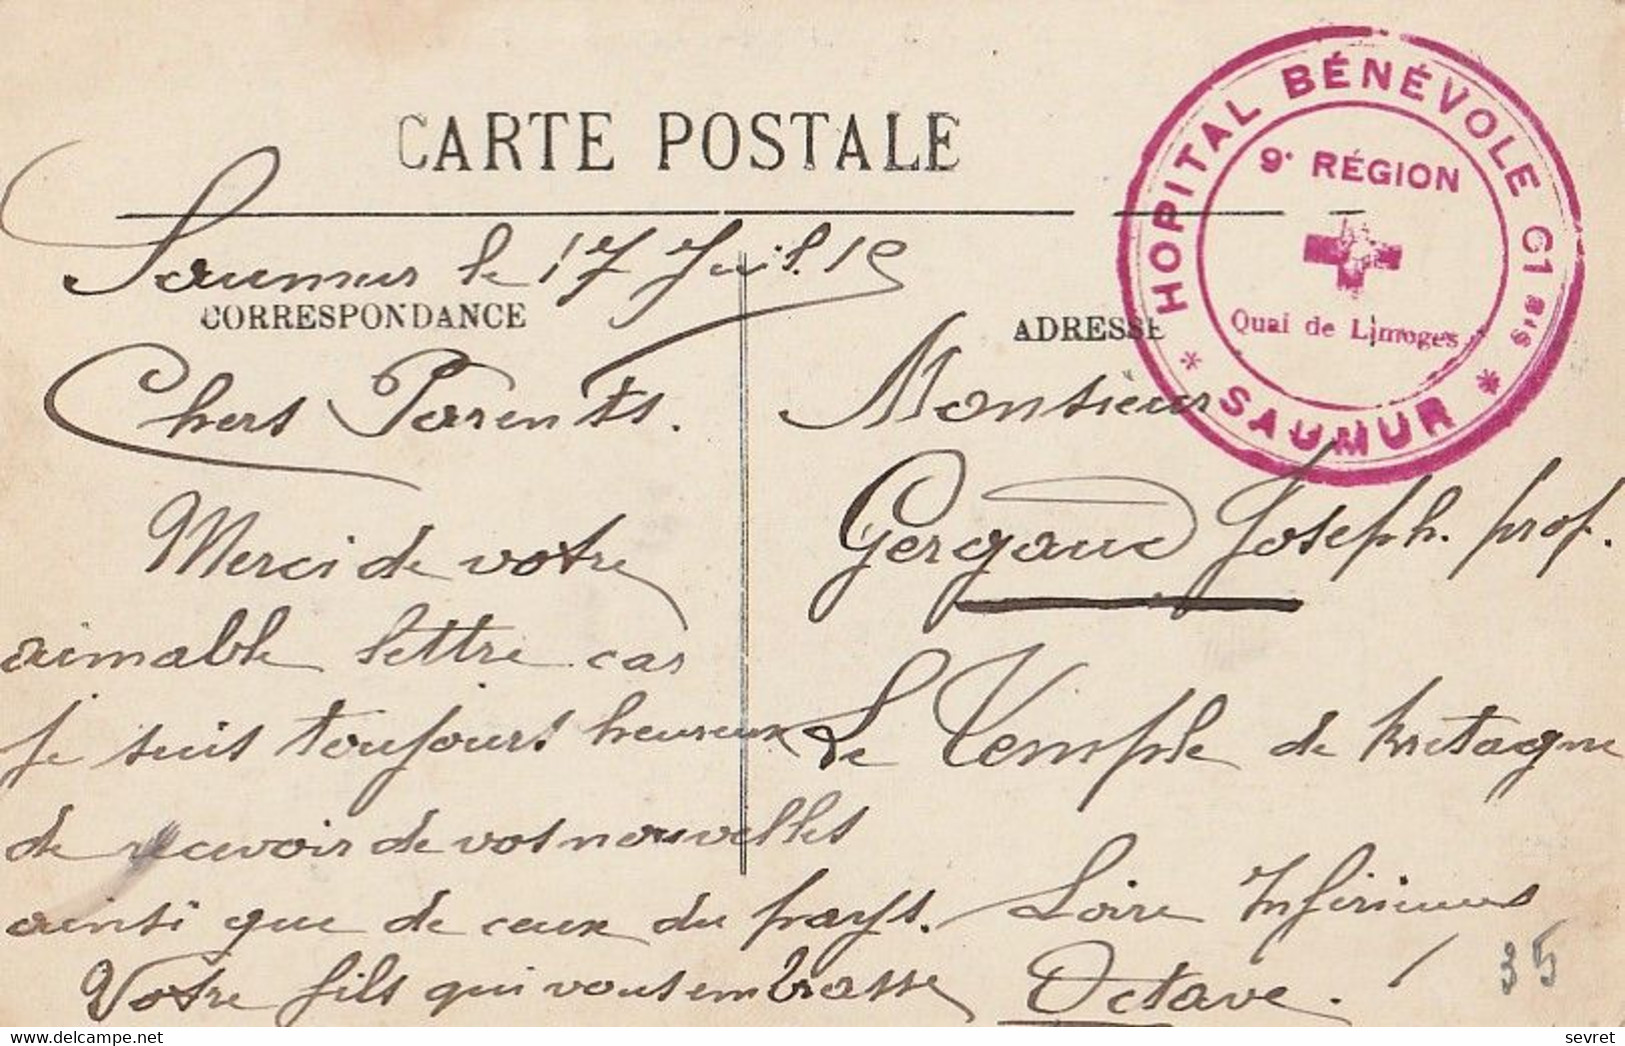 CARTE POSTALE
HOPITAL BÉNÉVOLE 61 Bis
9e RÉGION
Quai de Limoges
* SAUMUR *
Saumur le 17 Juil. 15
CORRESPONDANCE
Chers Parents.
Merci de votre
aimable lettre car
je suis toujours heureux
de recevoir de vos nouvelles
ainsi que de ceux du pays.
Votre fils qui vous embrasse
Octave.
ADRESSE
Monsieur
Gergaud Joseph. prof.
Le Temple de Bretagne
Loire Inférieure
35
sevret